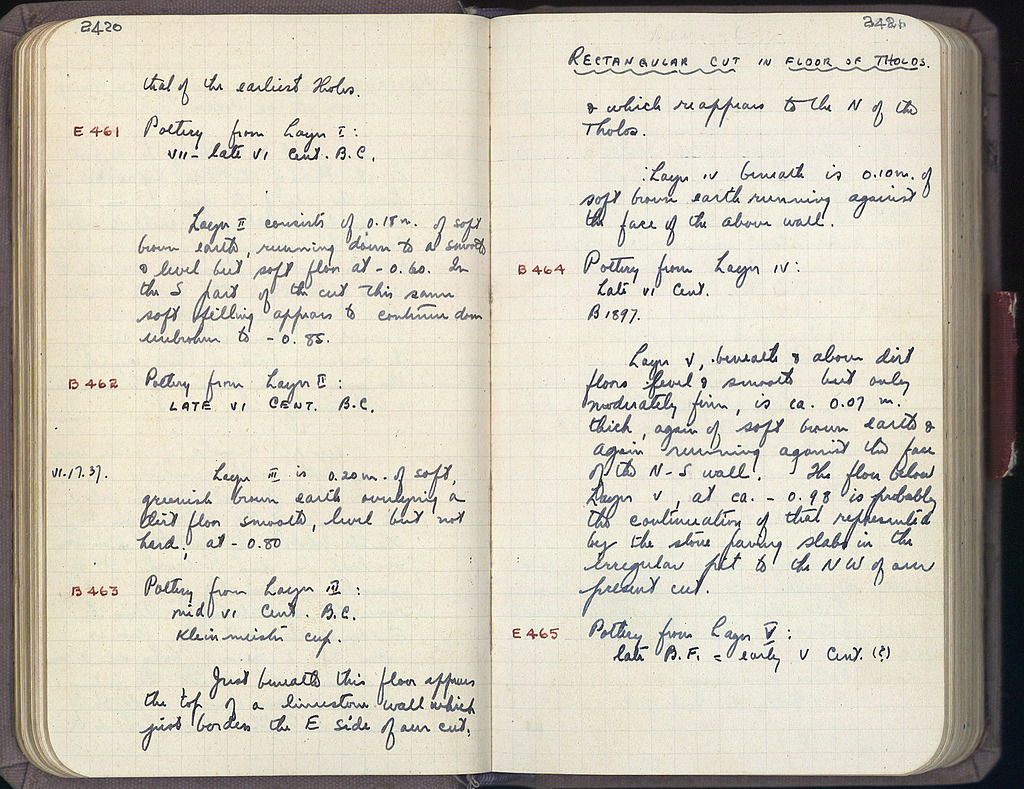 2420
that of the earliest Tholos.
E 461 Pottery from Layer I:
VII - late VI Cent. B.C.
Layer II consists of 0.18 m. of soft
brown earth, running down to a smooth
& level but soft floor at - 0.60. In
the S part of the cut this same
soft filling appears to continue down
unbroken to - 0.85.
B 462 Pottery from Layer II:
LATE VI CENT. B.C.
VI.17.37. Layer III is 0.20 m. of soft,
greenish brown earth overlying a
dirt floor smooth, level but not
hard, at - 0.80
B 463 Pottery from Layer III:
mid VI Cent. B.C.
Kleinmeister cup.
Just beneath this floor appears
the top of a limestone wall which
just borders the E side of our cut,
2421
RECTANGULAR CUT IN FLOOR OF THOLOS.
& which reappears to the N of the
Tholos.
Layer IV beneath is 0.10 m. of
soft brown earth running against
the face of the above wall.
B 464 Pottery from Layer IV:
Late VI Cent.
B 1897.
Layer V, beneath & above dirt
floors level & smooth but only
moderately firm, is ca. 0.07 m.
thick, again of soft brown earth &
again running against the face
of the N-S wall. The floor below
Layer V, at ca. - 0.98 is probably
the continuation of that represented
by the stone paving slabs in the
irregular pit to the NW of our
present cut.
E 465 Pottery from Layer V:
late B.F. = early V Cent. (?)